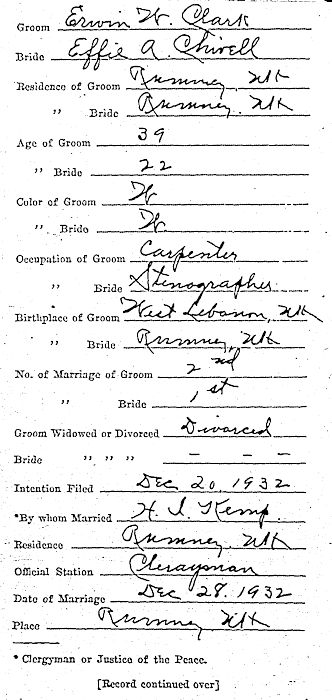 Groom Erwin W. Clark
Bride Effie A.
Residence of Groom Rumney, NH
" Bride Rumney, NH
Age of Groom 39
" Bride 22
Color of Groom W
" Bride W
Occupation of Groom Carpenter
" Bride Stenographer
Birthplace of Groom West Lebanon, NH
" Bride Rumney, NH
No. of Marriage of Groom 2nd
" Bride 1st
Groom Widowed or Divorced Divorced
Bride " " " – – –
Intention Filed Dec 20, 1932
*By whom Married H. I. Kemp.
Residence Rumney. NH
Official Station Clergyman
Date of Marriage Dec 28, 1932
Place Rumney NH
* Clergyman or Justice of the Peace.
[Record continued over]